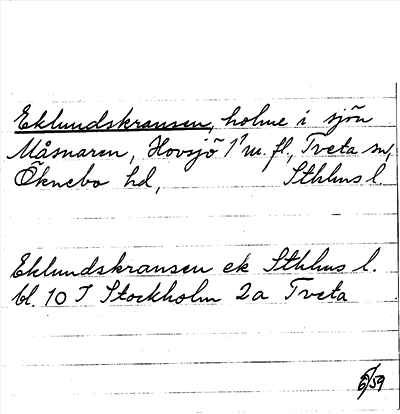 Eklundskransen, holme i sjön
Måsnaren, Hovsjö 1¹ m. fl., Tveta sn,
Öknebo hd, Sthlms l.
Eklundskransen ek Sthlms l.
bl. 10 I Stockholm 2a Tveta
6/59